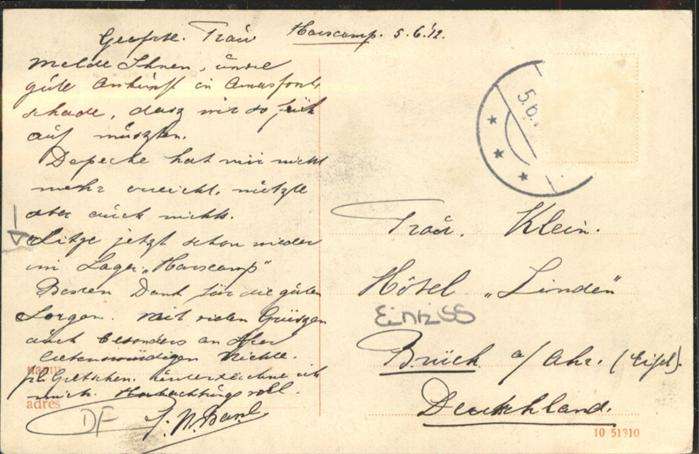 Geehrte Frau Harscamp. 5.6.12.
melde Ihnen, unsere
gute Ankunft in Amersfoort,
schade, dasz wir so früh
auf müszten.
Depeche hat mir nicht
mehr erreicht, nützte
aber auch nichts.
Sitze jetzt schon wieder
im Lager „Harscamp"
Besten Dank für die guten
Sorgen. Mit vielen Grüszen
auch besonders an Ihre
liebenswürdigen Nichte.
naam
frl. Gretchen. unterzeichne ich
mich. Hochachtungsvoll.
adres
DF
5.6.
Frau. Klein.
Hôtel „Linden"
Brück a/Ahr. (Eifel).
Deutschland.
10 51910